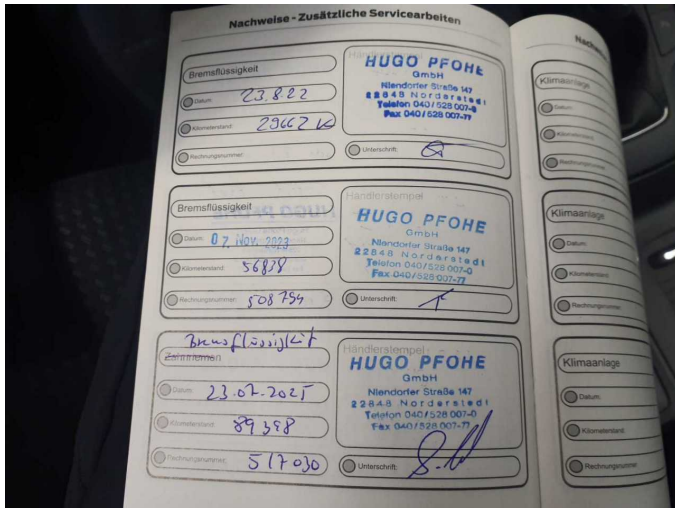 Nachweise - Zusätzliche Servicearbeiten
Bremsflüssigkeit
Datum: 23.8.22
Kilometerstand: 29662 K
Rechnungsnummer:
Händlerstempel
HUGO PFOHE
GmbH
Niendorfer Straße 147
22848 Norderstedt
Telefon 040/528 007-0
Fax 040/528 007-77
Unterschrift:
Bremsflüssigkeit
Datum: 07. Nov. 2023
Kilometerstand: 56838
Rechnungsnummer: 508794
Händlerstempel
HUGO PFOHE
GmbH
Niendorfer Straße 147
22848 Norderstedt
Telefon 040/528 007-0
Fax 040/528 007-77
Unterschrift:
Bremsflüssigkeit
Zahnriemen
Datum: 23.07.2025
Kilometerstand: 89398
Rechnungsnummer: 517030
Händlerstempel
HUGO PFOHE
GmbH
Niendorfer Straße 147
22848 Norderstedt
Telefon 040/528 007-0
Fax 040/528 007-77
Unterschrift:
Klimaanlage
Datum:
Kilometerstand:
Rechnungsnummer
Klimaanlage
Datum:
Kilometerstand:
Rechnungsnummer:
Klimaanlage
Datum:
Kilometerstand:
Rechnungsnummer